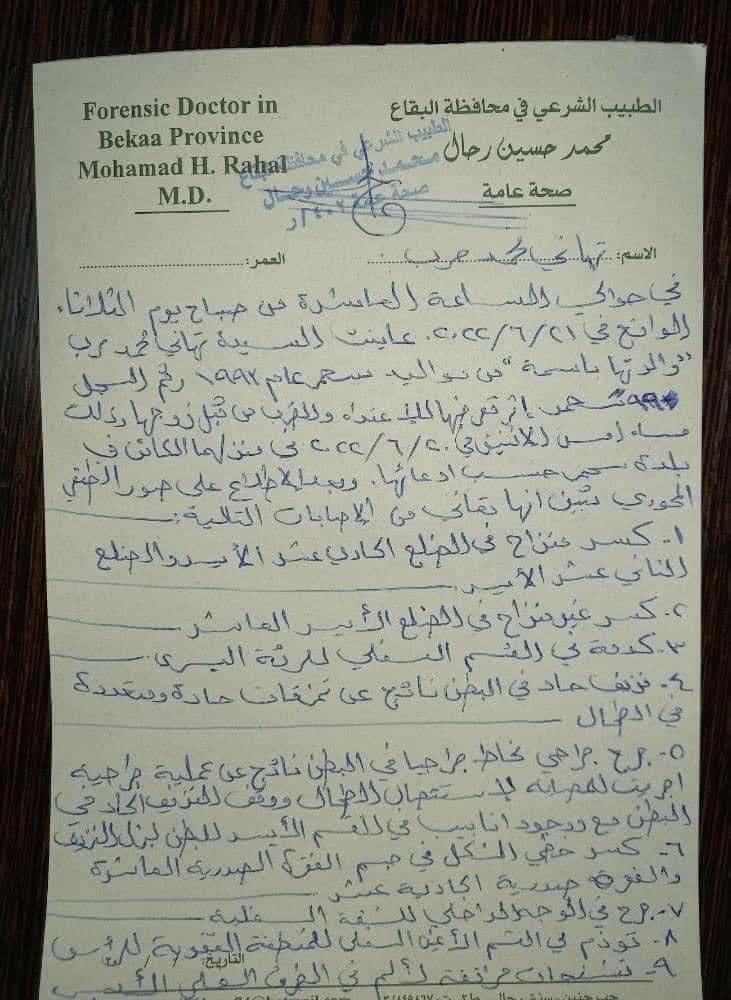 Forensic Doctor in
Bekaa Province
Mohamad H. Rahal
M.D.
الطبيب الشرعي في محافظة البقاع
محمد حسين رحال
صحة عامة
الطبيب الشرعي في محافظة البقاع
محمد حسين رحال
صحة عامة
الاسم: تهاني محمد حرب
العمر:
في حوالي الساعة العاشرة من صباح يوم الثلاثاء
الواقع في ٢٠٢٢/٦/٢١، عاينت السيدة تهاني محمد حرب
"والدتها باسمة" من مواليد عام ١٩٩٢ رقم السجل
للضرب من قبل زوجها وذلك
مساء امس الاثنين في ٢٠٢٢/٦/٢٠ في منزلهما الكائن في
بلدة حسب ادعائها. وبعد الاطلاع على صور الطبقي
المحوري تبين انها تعاني من الإصابات التالية:
١- كسر منزاح في الضلع الحادي عشر الأيسر والضلع
الثاني عشر الأيسر
٢- كسر غير منزاح في الضلع الأيسر العاشر
٣- كدمة في القسم السفلي للرئة اليسرى
٤- نزيف حاد في البطن ناتج عن تمزقات حادة ومتعددة
في الطحال
٥- جرح جراحي مخاط جراحيا في البطن ناتج عن عملية جراحية
اجريت لاستئصال الطحال ووقف النزيف الحاد في
البطن مع وجود انابيب في القسم الأيسر للبطن لبزل النزيف
٦- كسر في جسم الفقرة الصدرية العاشرة
والفقرة صدرية الحادية عشر
٧- جرح في الوجه الداخلي للشفة السفلية
٨- تورم في القسم الأيمن السفلي للمنطقة للرأس
التاريخ
٩- تشنجات مرافقة لألم في الطرف السفلي